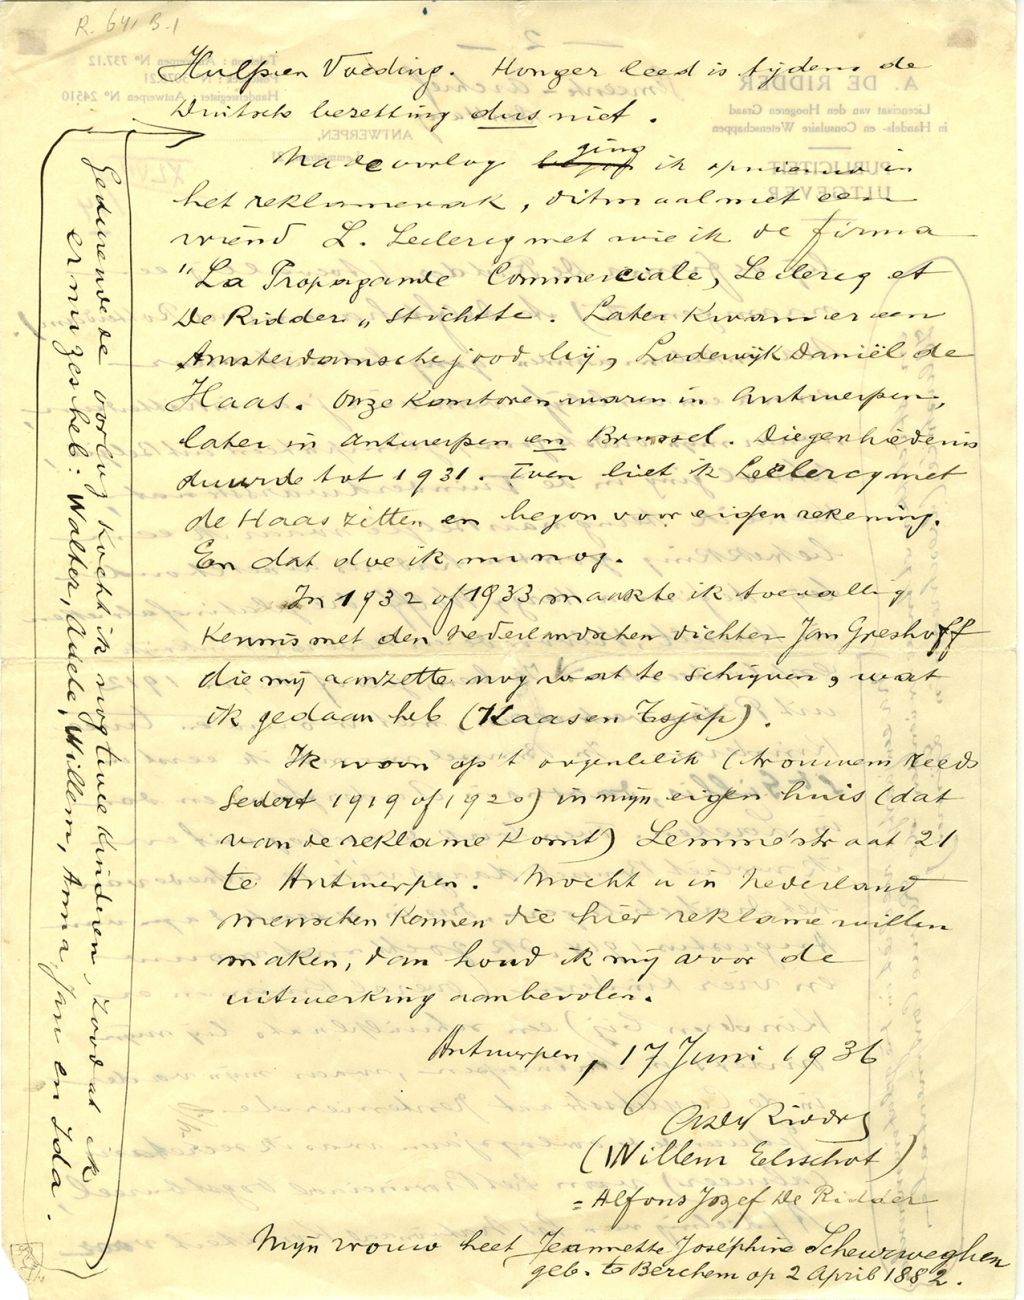 R. 641 B.1
Hulp en Voeding. Honger leed is tijdens de
Duitsche bezetting dus niet.
Na de oorlog ging ik opnieuw in
het reklamevak, ditmaal met een
vriend L. Leclercq met wie ik de firma
"La Propagande Commerciale, Leclercq et
De Ridder" stichtte. Later kwam er een
Amsterdamsche jood bij, Lodewijk Daniël de
Haas. Onze kantoren waren in Antwerpen,
later in Antwerpen en Brussel. Die geschiedenis
duurde tot 1931. Toen liet ik Leclercq met
de Haas zitten en begon voor eigen rekening.
En dat doe ik nu nog.
In 1932 of 1933 maakte ik toevallig
kennis met den Nederlandschen dichter Jan Greshoff
die mij aanzette nog wat te schrijven, wat
ik gedaan heb (Kaas en Tsjip).
Ik woon op 't oogenblik (trouwens reeds
sedert 1919 of 1920) in mijn eigen huis (dat
van de reklame komt) Lemméstraat 21
te Antwerpen. Mocht u in Nederland
menschen kennen die hier reklame willen
maken, dan houd ik mij voor de
uitwerking aanbevolen.
Antwerpen, 17 Juni 1936
A De Ridder
(Willem Elsschot)
= Alfons Jozef De Ridder
Mijn vrouw heet Jeannette Joséphine Scheurweghen
geb. te Berchem op 2 April 1882.
Gedurende de oorlog kocht ik nog twee kinderen, zoodat ik
er nu zes heb: Walter, Adele, Willem, Anna, Jan en Ida.